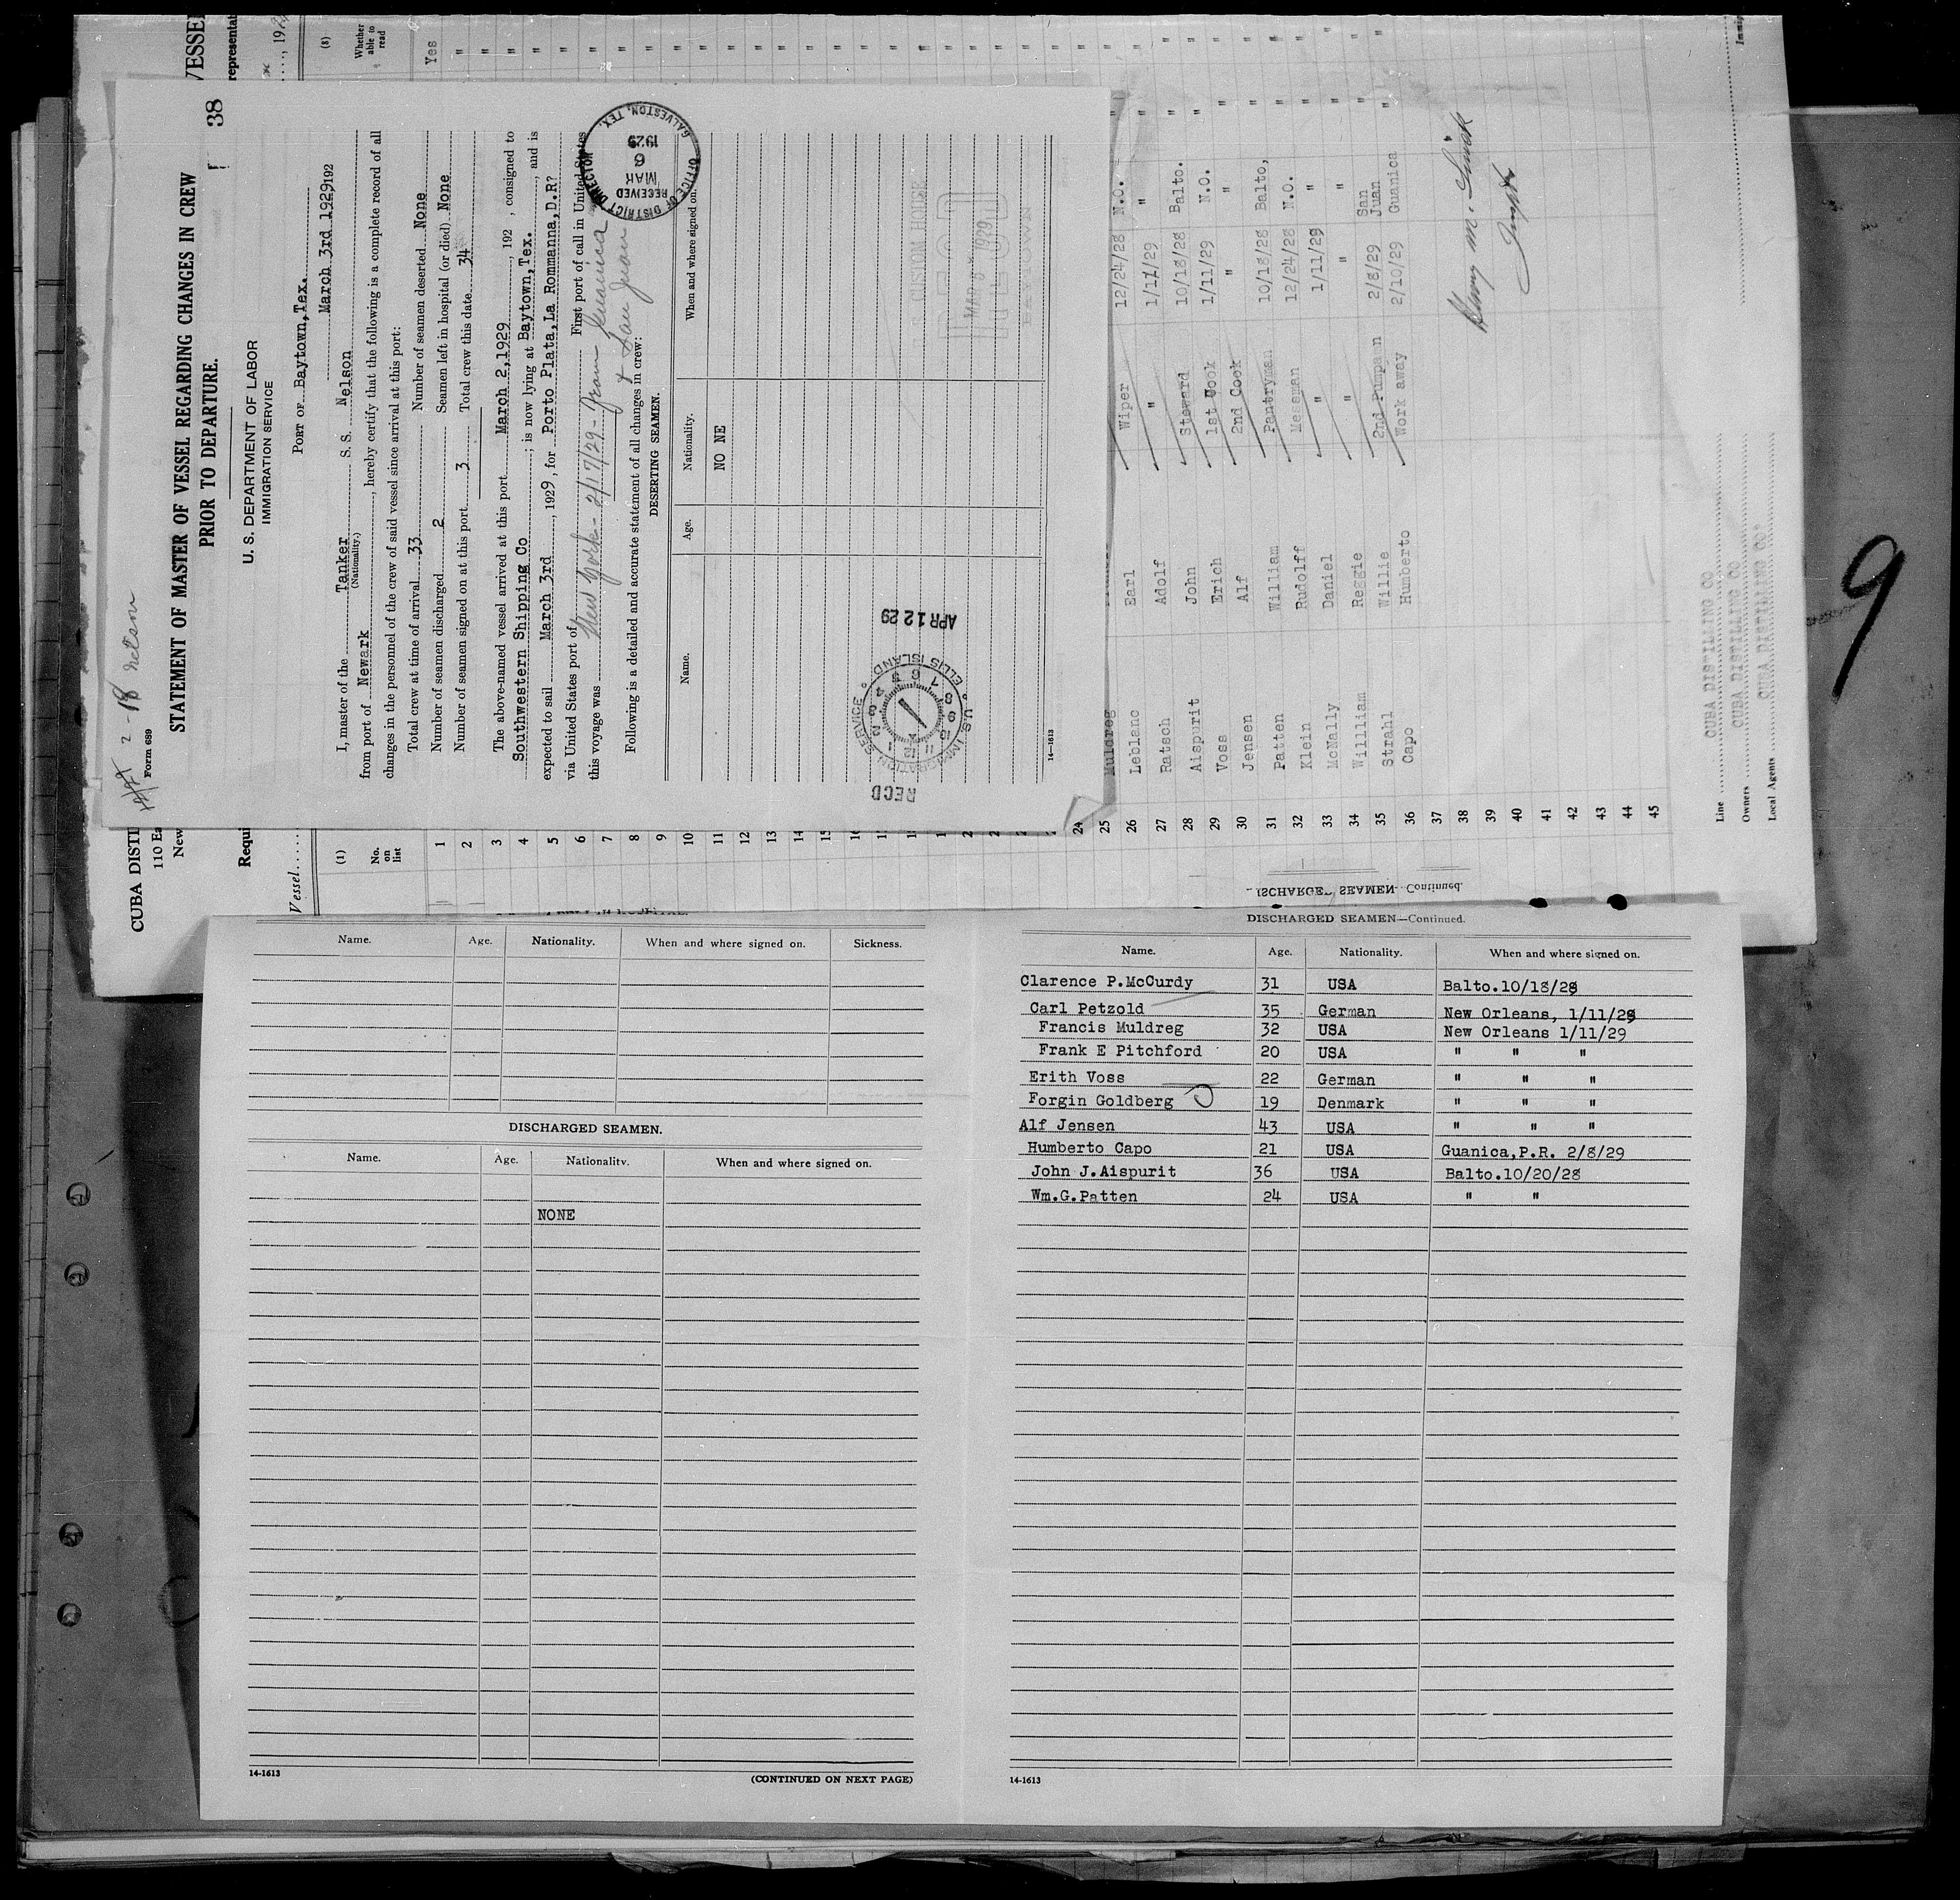 Nelson
Form 689
38
STATEMENT OF MASTER OF VESSEL REGARDING CHANGES IN CREW
PRIOR TO DEPARTURE.
U. S. DEPARTMENT OF LABOR
IMMIGRATION SERVICE
PORT OF Baytown,Tex.
March 3rd 1929192
I, master of the Tanker S. S. Nelson
(Nationality.)
from port of Newark, hereby certify that the following is a complete record of all
changes in the personnel of the crew of said vessel since arrival at this port:
Total crew at time of arrival 33 Number of seamen deserted None
Number of seamen discharged 2 Seamen left in hospital (or died) None
Number of seamen signed on at this port 3 Total crew this date 34
The above-named vessel arrived at this port March 2,1929, 192 , consigned to
Southwestern Shipping Co ; is now lying at Baytown,Tex. , and is
expected to sail March 3rd , 1929, for Porto Plata,La Rommanna,D.R?
via United States port of First port of call in United States
this voyage was New York - 2/17/29 - from Guanica
& San Juan
Following is a detailed and accurate statement of all changes in crew:
DESERTING SEAMEN.
Name. Age. Nationality. When and where signed on.
NO NE
OFFICE OF DISTRICT DIRECTOR
RECEIVED
MAR 6 1929
GALVESTON, TEX.
U.S. IMMIGRATION SERVICE
ELLIS ISLAND
RECD
APR 12 29
14—1613
VESSEL
representat
(8)
Whether able to read
Yes
CUBA DISTI
110 Ea
New
Requi
Vessel
(1)
No. on list
1
2
3
4
5
6
7
8
9
10
11
12
13
14
15
24
25 Muldreg
26 Leblanc Earl Wiper 12/24/28 N.O. "
27 Ratsch Adolf " 1/11/29 " "
28 Aispurit John Steward 10/18/28 Balto. "
29 Voss Erich 1st Cook 1/11/29 N.O. "
30 Jensen Alf 2nd Cook " " "
31 Patten William Pantryman 10/18/28 Balto, "
32 Klein Rudolff Messman 12/24/28 N.O. "
33 McNally Daniel " 1/11/29 " "
34 William Reggie " " " "
35 Strahl Willie 2nd Pumpa n 2/8/29 San Juan "
36 Capo Humberto Work away 2/10/29 Guanica "
37
38
39
40
41
42
43
44
45
Line CUBA DISTILLING CO
Owners CUBA DISTILLING CO
Local Agents CUBA DASTILLING CO
9
DISCHARGED SEAMEN—Continued.
Name. Age. Nationality. When and where signed on. Sickness.
DISCHARGED SEAMEN.
Name. Age. Nationality. When and where signed on.
NONE
14-1613
(CONTINUED ON NEXT PAGE)
DISCHARGED SEAMEN—Continued.
Name. Age. Nationality. When and where signed on.
Clarence P.McCurdy 31 USA Balto.10/18/28
Carl Petzold 35 German New Orleans, 1/11/29
Francis Muldreg 32 USA New Orleans 1/11/29
Frank E Pitchford 20 USA " " "
Erith Voss 22 German " " "
Forgin Goldberg 19 Denmark " " "
Alf Jensen 43 USA " " "
Humberto Capo 21 USA Guanica,P.R. 2/8/29
John J.Aispurit 36 USA Balto.10/20/28
Wm.G.Patten 24 USA " "
14-1613